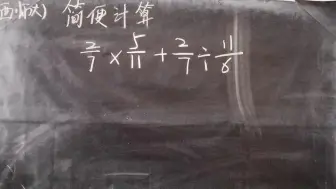 西师大) 简便计算
2/7 × 5/11 + 2/7 ÷ 11/6